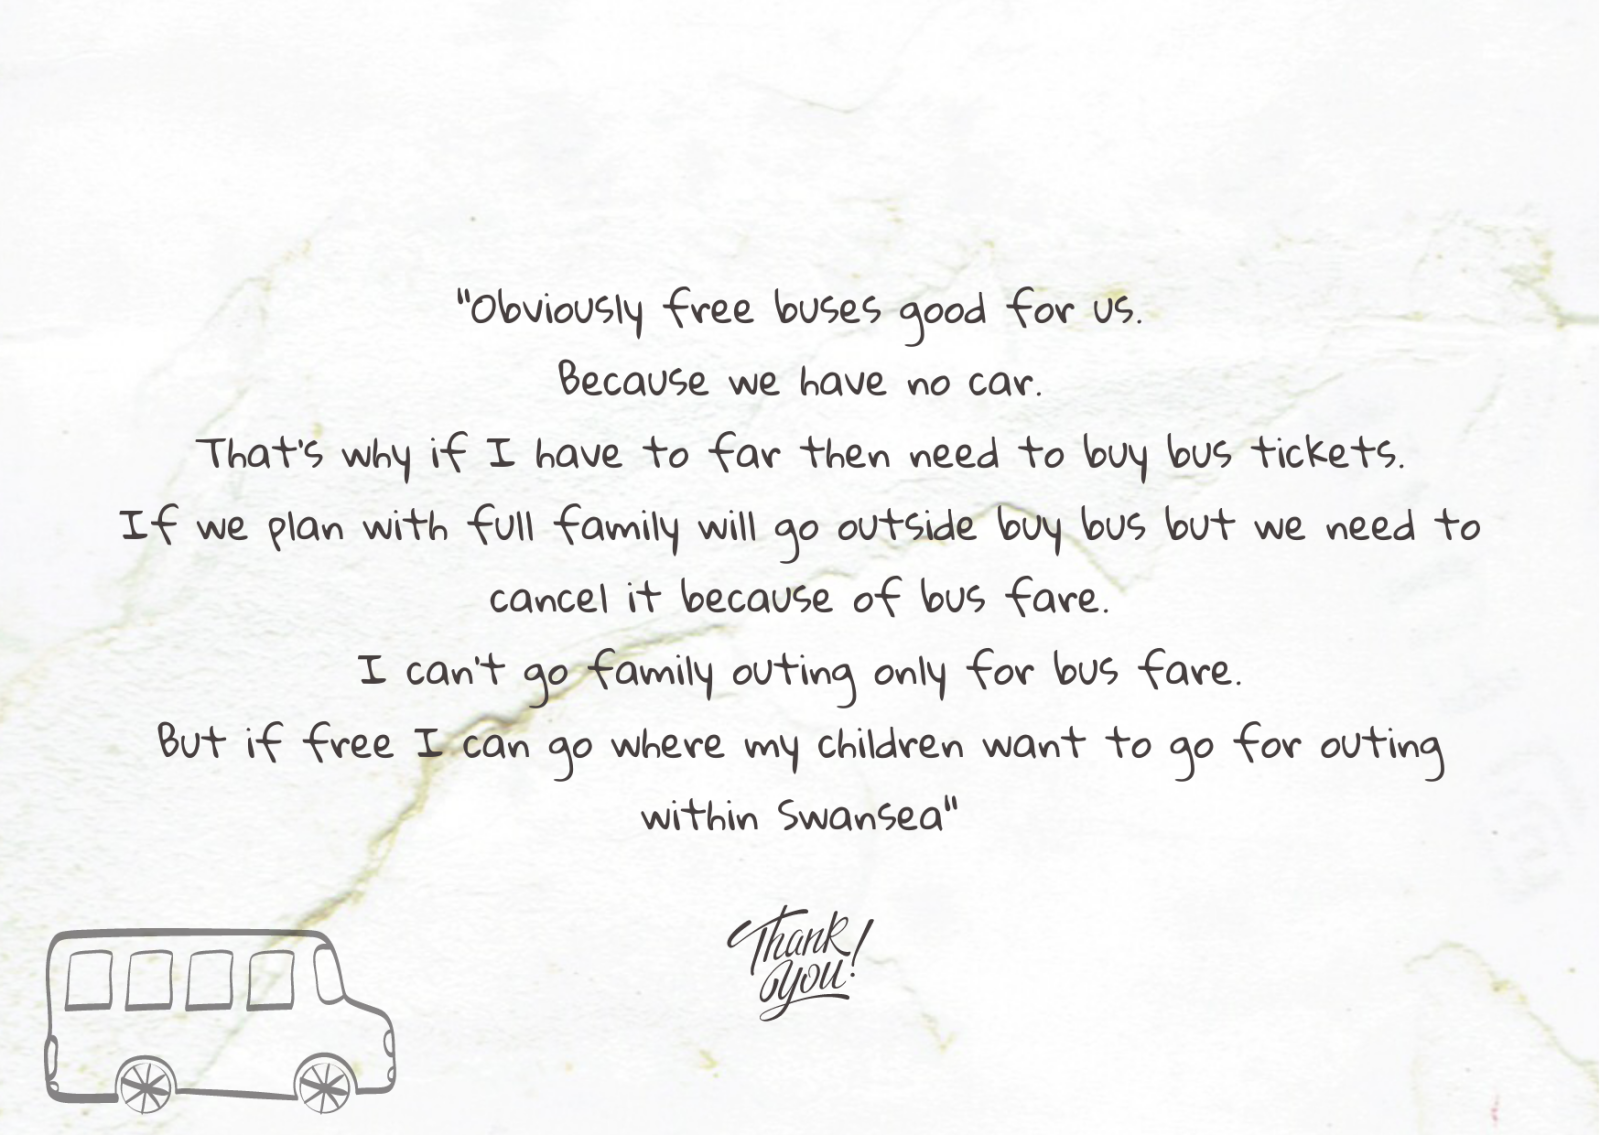 "Obviously free buses good for us.
Because we have no car.
That's why if I have to far then need to buy bus tickets.
If we plan with full family will go outside buy bus but we need to
cancel it because of bus fare.
I can't go family outing only for bus fare.
But if free I can go where my children want to go for outing
within Swansea"
Thank
you!